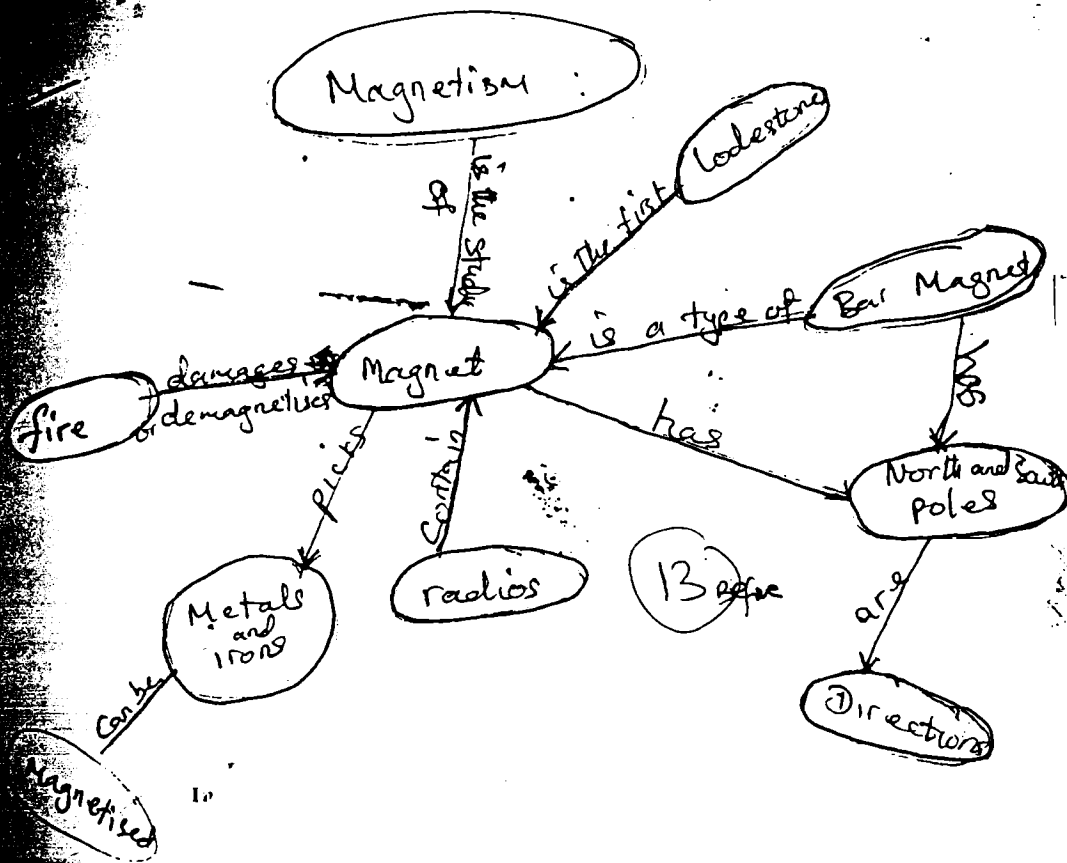 Magnetism :
is the study
of
lodestone
is the first
Bar Magnet
is a type of
has
Magnet
fire
damages
or demagnetises
has
North and South
poles
picks
contain
radios
Metals
and
irons
can be
Magnetised
are
Directions
13 Before